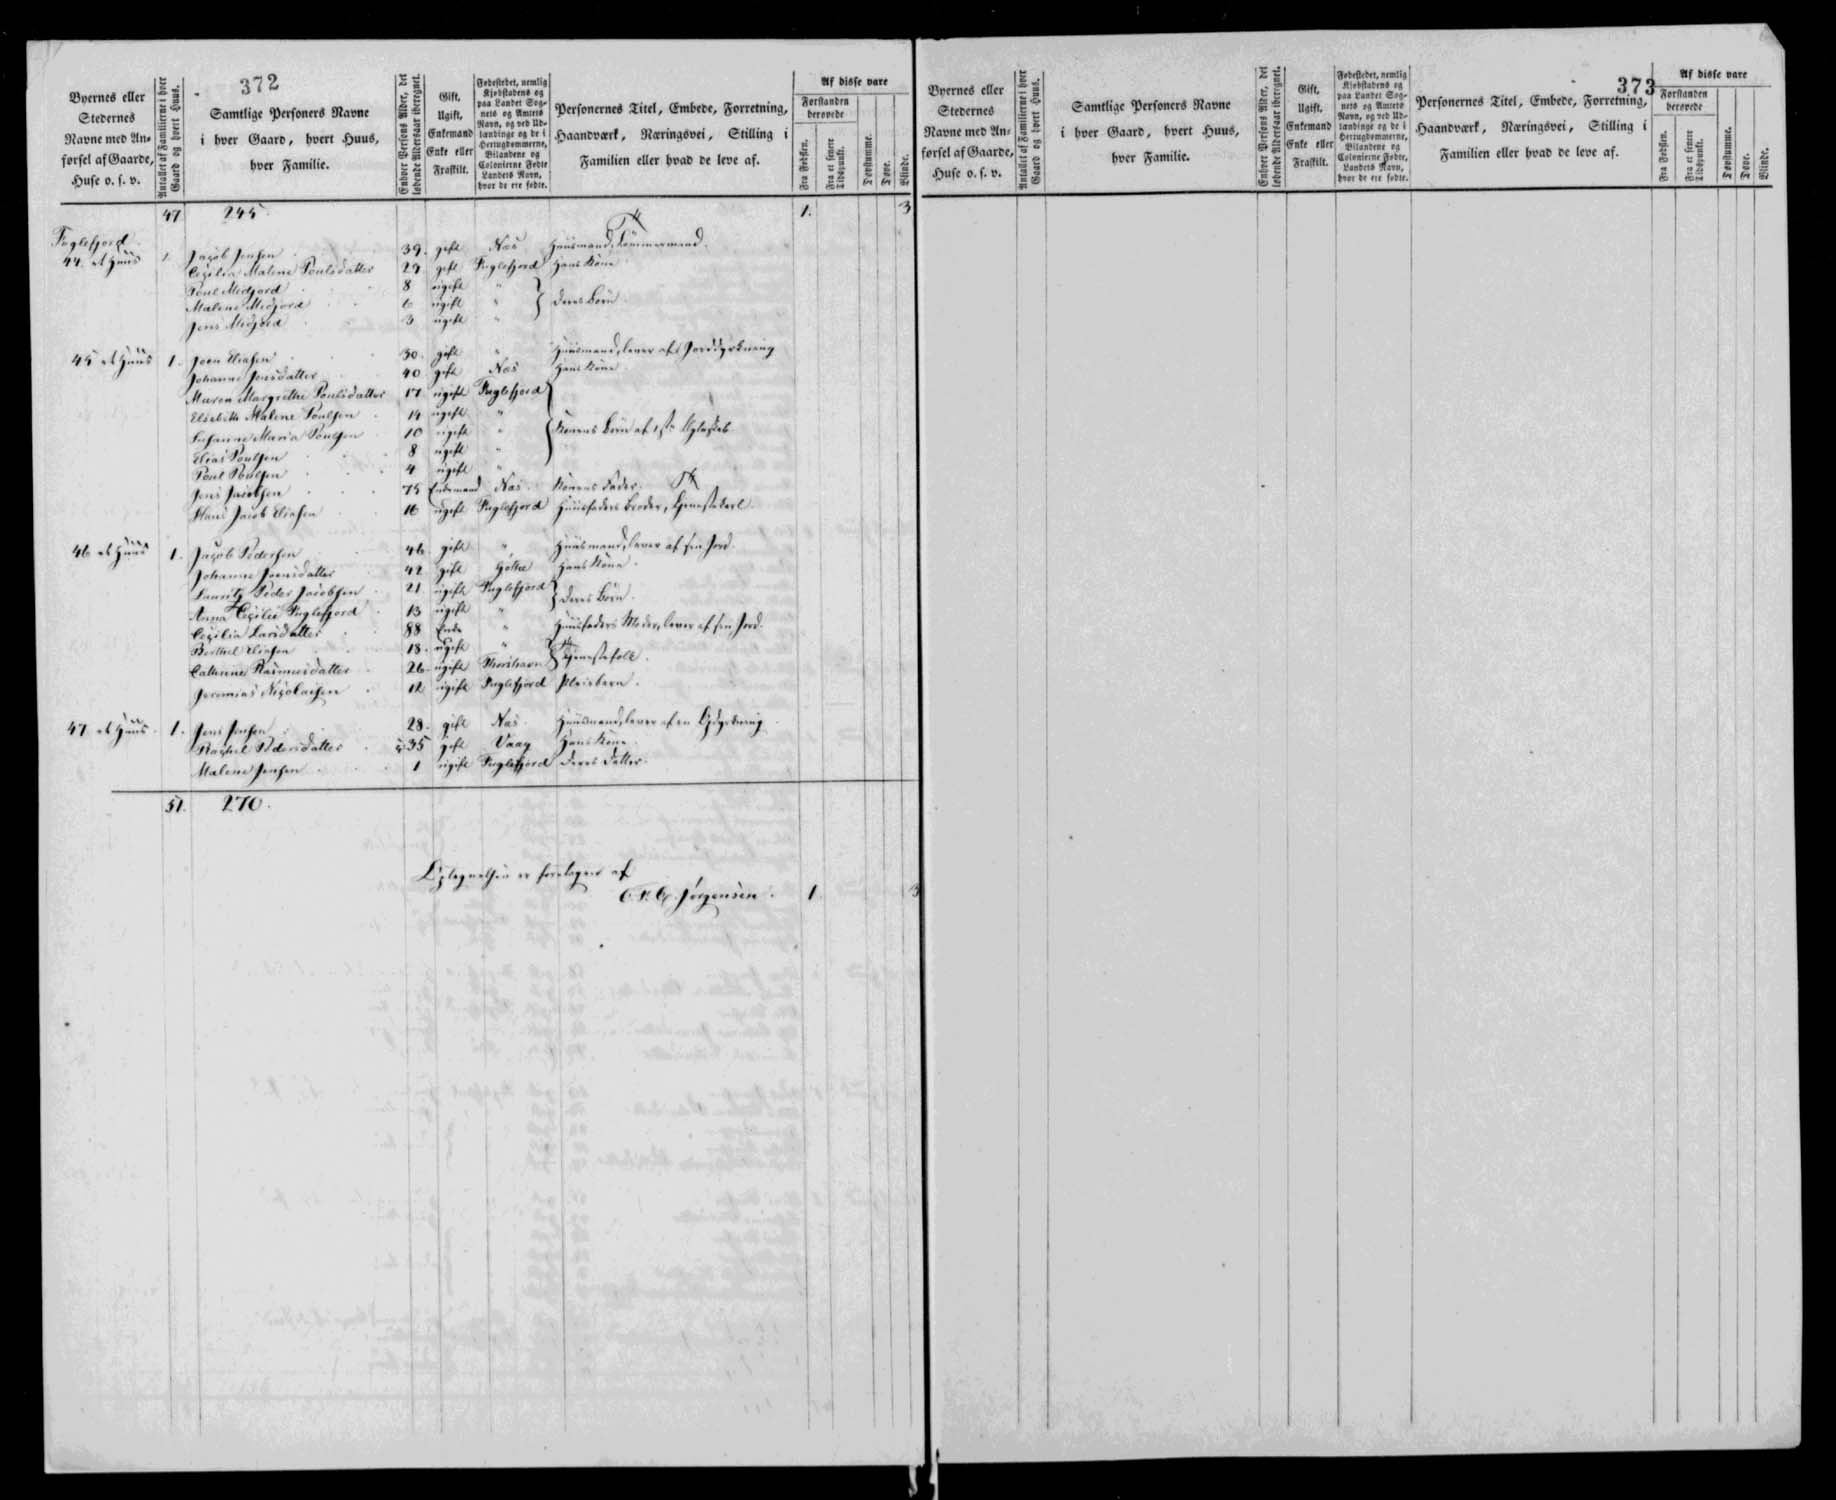 372
Byernes eller Stedernes Navne med Anførsel af Gaarde, Huse o. s. v.
Antallet af Familierne i hver Gaard og hvert Huus.
Samtlige Personers Navne i hver Gaard, hvert Huus, hver Familie.
Enhver Persons Alder, det løbende Aldersaar iberegnet.
Gift, Ugift, Enkemand Enke eller Fraskilt.
Fødestedet, nemlig Kjøbstadens og paa Landet Sognets og Amtets Navn, og ved Udlændinge og de i Hertugdømmerne, Bilandene og Colonierne Fødte, Landets Navn, hvor de ere fødte.
Personernes Titel, Embede, Forretning, Haandværk, Næringsvei, Stilling i Familien eller hvad de leve af.
Af disse vare
Forstanden berøvede
Fra Fødslen.
Fra et senere Tidspunkt.
Døvstumme.
Døve.
Blinde.
47 245 1. 3
Fuglefjord
44. et Huus 1. Jacob Jensen 39. gift Næs Huusmand, Tømmermand.
Cecilia Malene Poulsdatter 29 gift Fuglefjord Hans Kone
Poul Midjord 8 ugift "
Malene Midjord 6 ugift " } deres Børn.
Jens Midjord 3 ugift "
45 et Huus 1. Joen Eliasen 30. gift " Huusmand, lever af Jorddyrkning
Johanne Jensdatter 40 gift Næs Hans Kone
Maren Margrethe Poulsdatter 17 ugift Fuglefjord
Elsebeth Malene Poulsen 14 ugift "
Susanne Maria Poulsen 10 ugift " Konens Børn af 1ste Ægteskab
Elias Poulsen 8 ugift "
Poul Poulsen 4 ugift "
Jens Jacobsen 75 Enkemand Næs. Konens Fader.
Hans Jacob Eliasen 16 ugift Fuglefjord Huusfaders Broder, Tjenestekarl
46 et Huus 1. Jacob Pedersen 46 gift " Huusmand, lever af sin Jord.
Johanne Joensdatter 42 gift Gøthe Hans Kone.
Lauritz Peder Jacobsen 21 ugift Fuglefjord
Anna Cecilie Fuglefjord 13 ugift " } deres Børn.
Cecilia Larsdatter 88 Enke " Huusfaders Moder, lever af sin Jord.
Berthel Eliasen 18. ugift "
Cathrine Rasmusdatter 26 ugift Thorshavn } Tjenestefolk.
Jeremias Nicolaisen 12 ugift Fuglefjord Pleiebarn.
47 et Huus 1. Jens Jensen 28. gift Næs. Huusmand, lever af
Rachel Pedersdatter 35 gift Vaag Hans Kone
Malene Jensen 1 ugift Fuglefjord deres Datter.
51. 270.
Optegnelsen er foretagen af
Jørgensen. 1 3
373
Byernes eller Stedernes Navne med Anførsel af Gaarde, Huse o. s. v.
Antallet af Familierne i hver Gaard og hvert Huus.
Samtlige Personers Navne i hver Gaard, hvert Huus, hver Familie.
Enhver Persons Alder, det løbende Aldersaar iberegnet.
Gift, Ugift, Enkemand Enke eller Fraskilt.
Fødestedet, nemlig Kjøbstadens og paa Landet Sognets og Amtets Navn, og ved Udlændinge og de i Hertugdømmerne, Bilandene og Colonierne Fødte, Landets Navn, hvor de ere fødte.
Personernes Titel, Embede, Forretning, Haandværk, Næringsvei, Stilling i Familien eller hvad de leve af.
Af disse vare
Forstanden berøvede
Fra Fødslen.
Fra et senere Tidspunkt.
Døvstumme.
Døve.
Blinde.